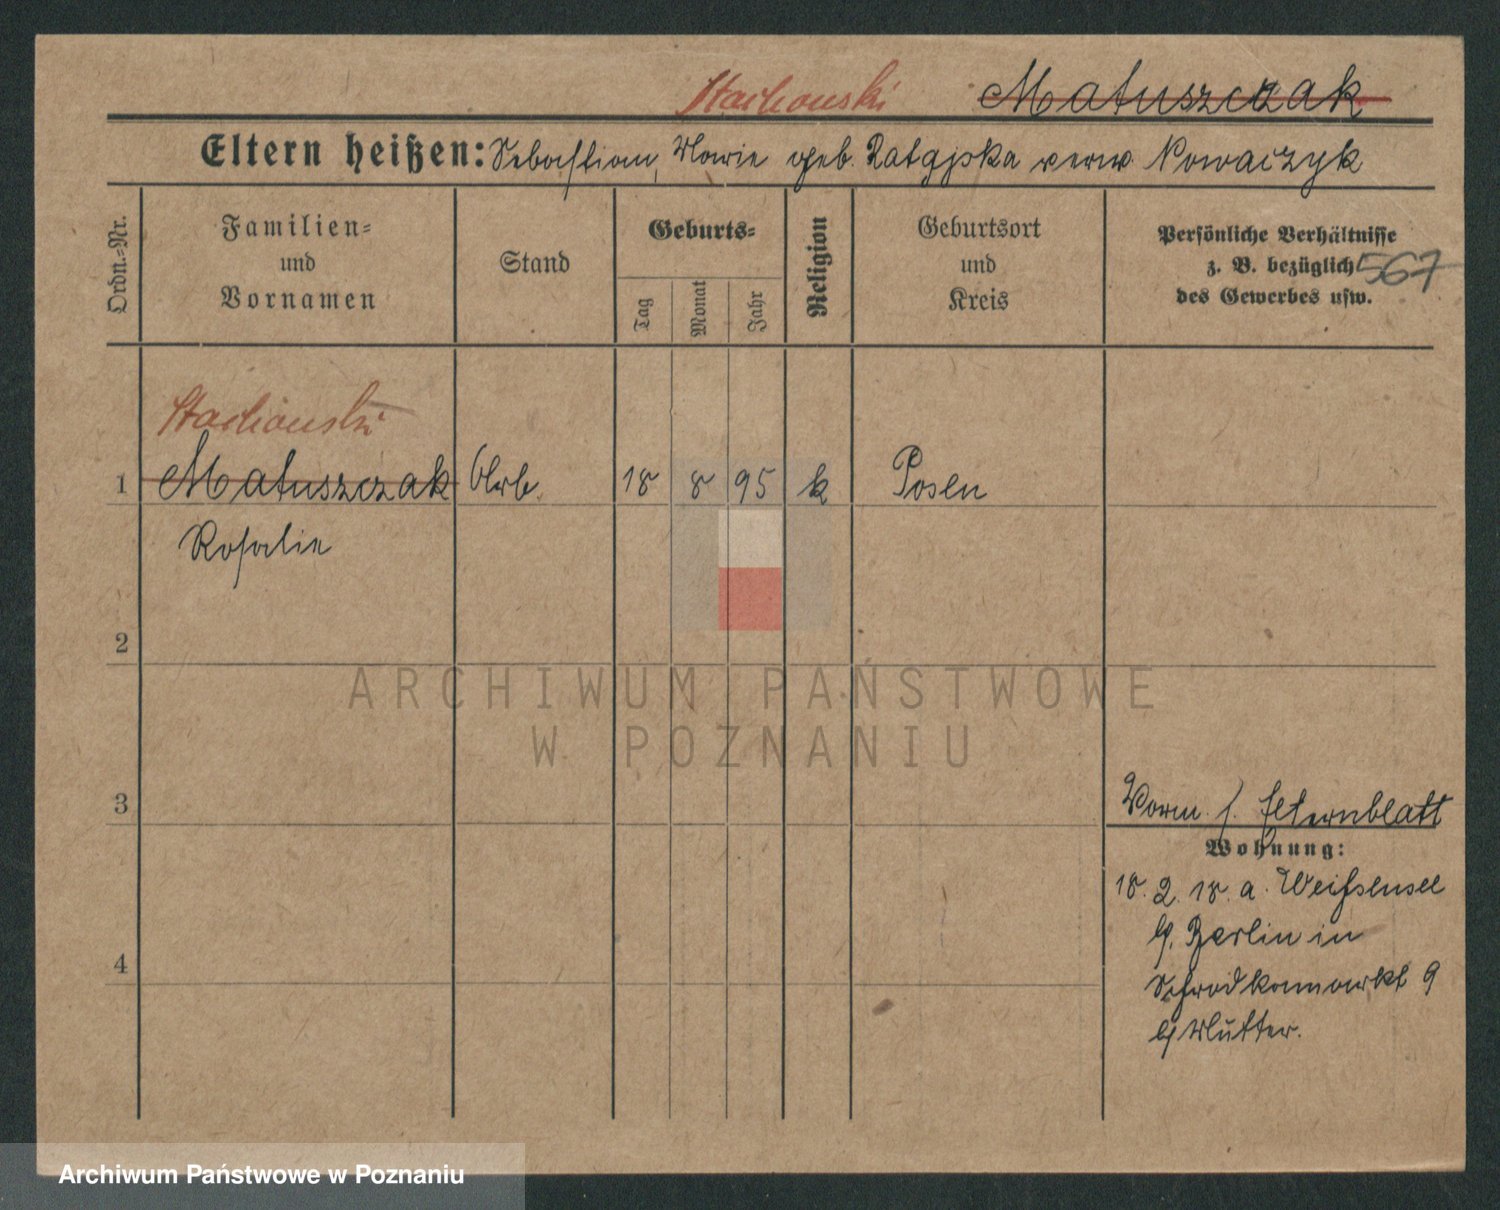 Stachowski Matuszczak
Eltern heißen: Sebastian, Marie geb. Ratajska verw. Nowaczyk
Ordn.-Nr.
Familien-
und
Vornamen
Stand
Geburts-
Tag
Monat
Jahr
Religion
Geburtsort
und
Kreis
Persönliche Verhältnisse
z. B. bezüglich 567
des Gewerbes usw.
Stachowski
1 Matuszczak Arb. 18 8 95 k Posen
Rosalie
2
3
4
Vorm. s. Elternblatt
Wohnung:
18. 2. 18. a. Weißensee
b. Berlin in
Schrodkamarkt 9
b/ Mutter.
ARCHIWUM PAŃSTWOWE
W POZNANIU
Archiwum Państwowe w Poznaniu